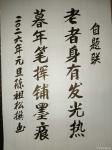 自题联
老者身有发光热
暮年笔挥铺墨痕
二〇二六年元旦陈祖松撰画